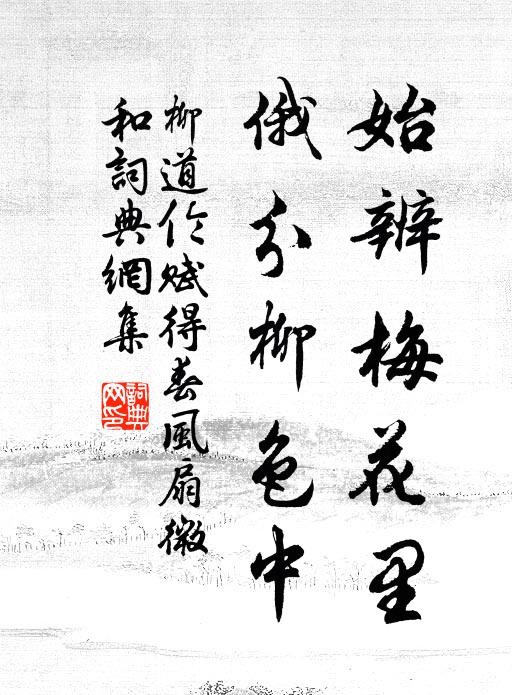 始辨梅花里
俄分柳色中
柳道伦赋得春风扇微
和词典网集
词典
网印